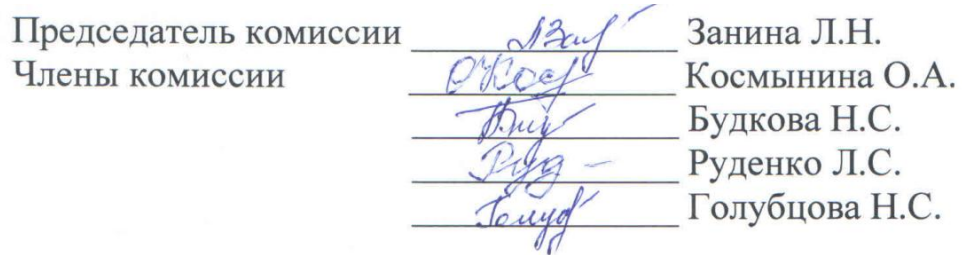 Председатель комиссии Занина Л.Н.
Члены комиссии Космынина О.А.
Будкова Н.С.
Руденко Л.С.
Голубцова Н.С.